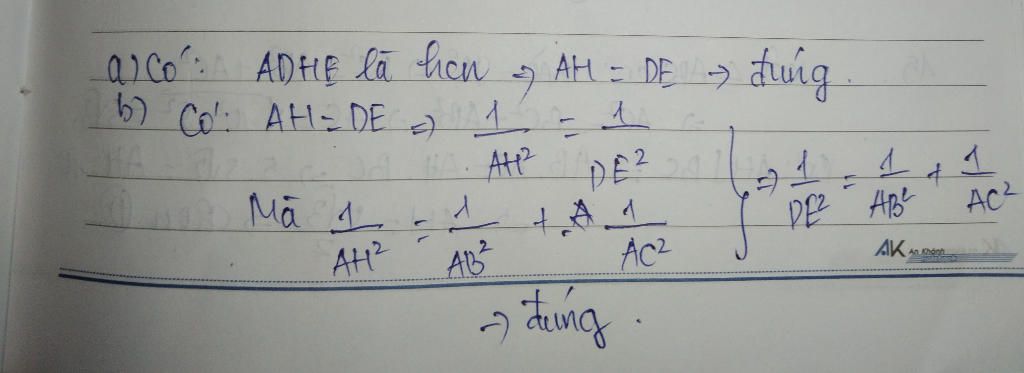 a) Có: ADHE là hcn ⇒ AH = DE → đúng.
b) Có: AH = DE ⇒ 1/AH² = 1/DE²
Mà 1/AH² = 1/AB² + 1/AC²
} ⇒ 1/DE² = 1/AB² + 1/AC²
AK An Khánh
→ đúng.